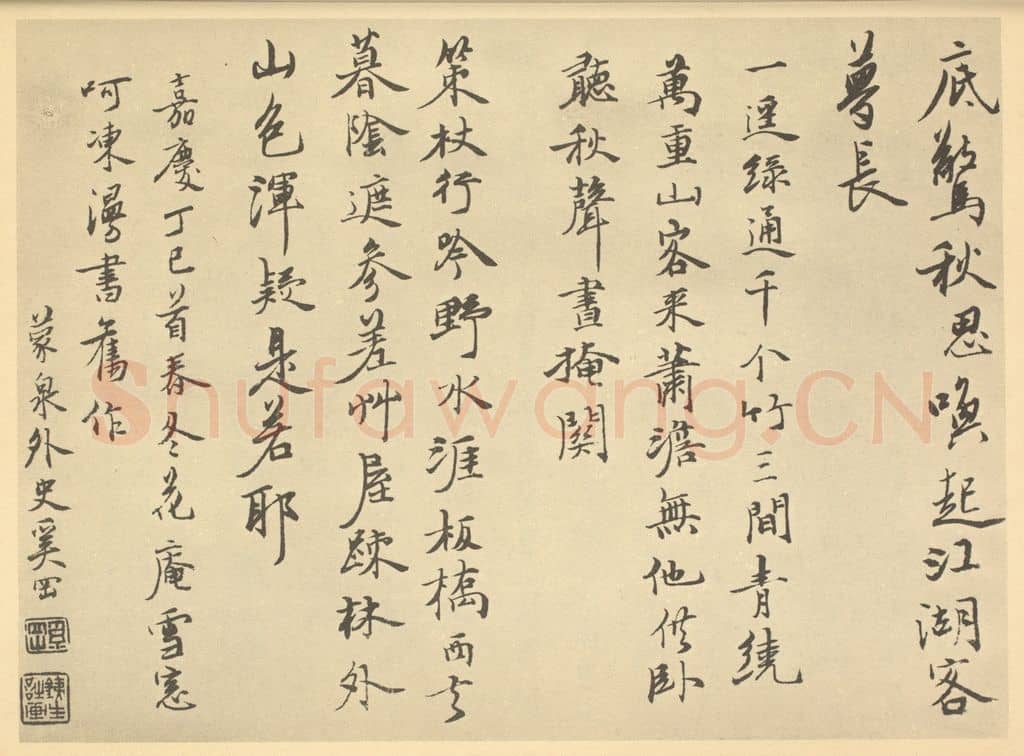 底驚秋思喚起江湖客
夢長
一逕綠通千个竹三間青繞
萬重山客來蕭澹無他供卧
聽秋聲晝掩關
策杖行吟野水涯板橋西去
暮陰遮參差艸屋疎林外
山色渾疑是若耶
嘉慶丁巳首春冬花庵雪窓
呵凍漫書舊作
蒙泉外史奚岡
Shufawang.CN